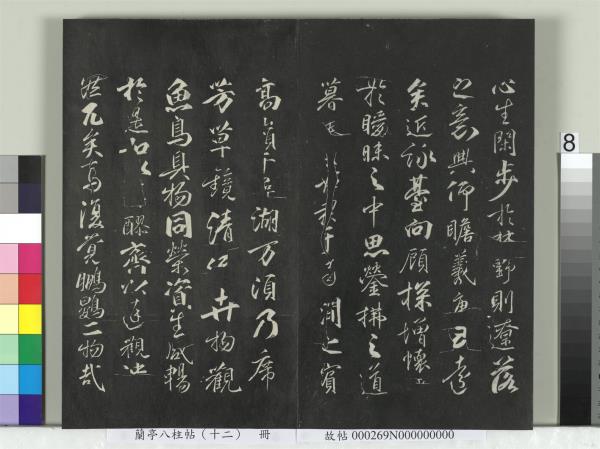 心生閑步於林野則遼落
之意興仰瞻羲唐遠
矣近詠臺顧探增懷
於曖昧之中思縈拂之道
暮禊于南澗之賓
高嶺千湖万頃乃席
芳草鏡清卉物觀
魚鳥具物同榮資生咸暢
於是和以醪齊以達觀泱
然兀矣焉復覺鵬鷃二物哉
8
蘭亭八柱帖（十二） 冊
故帖 000269N000000000